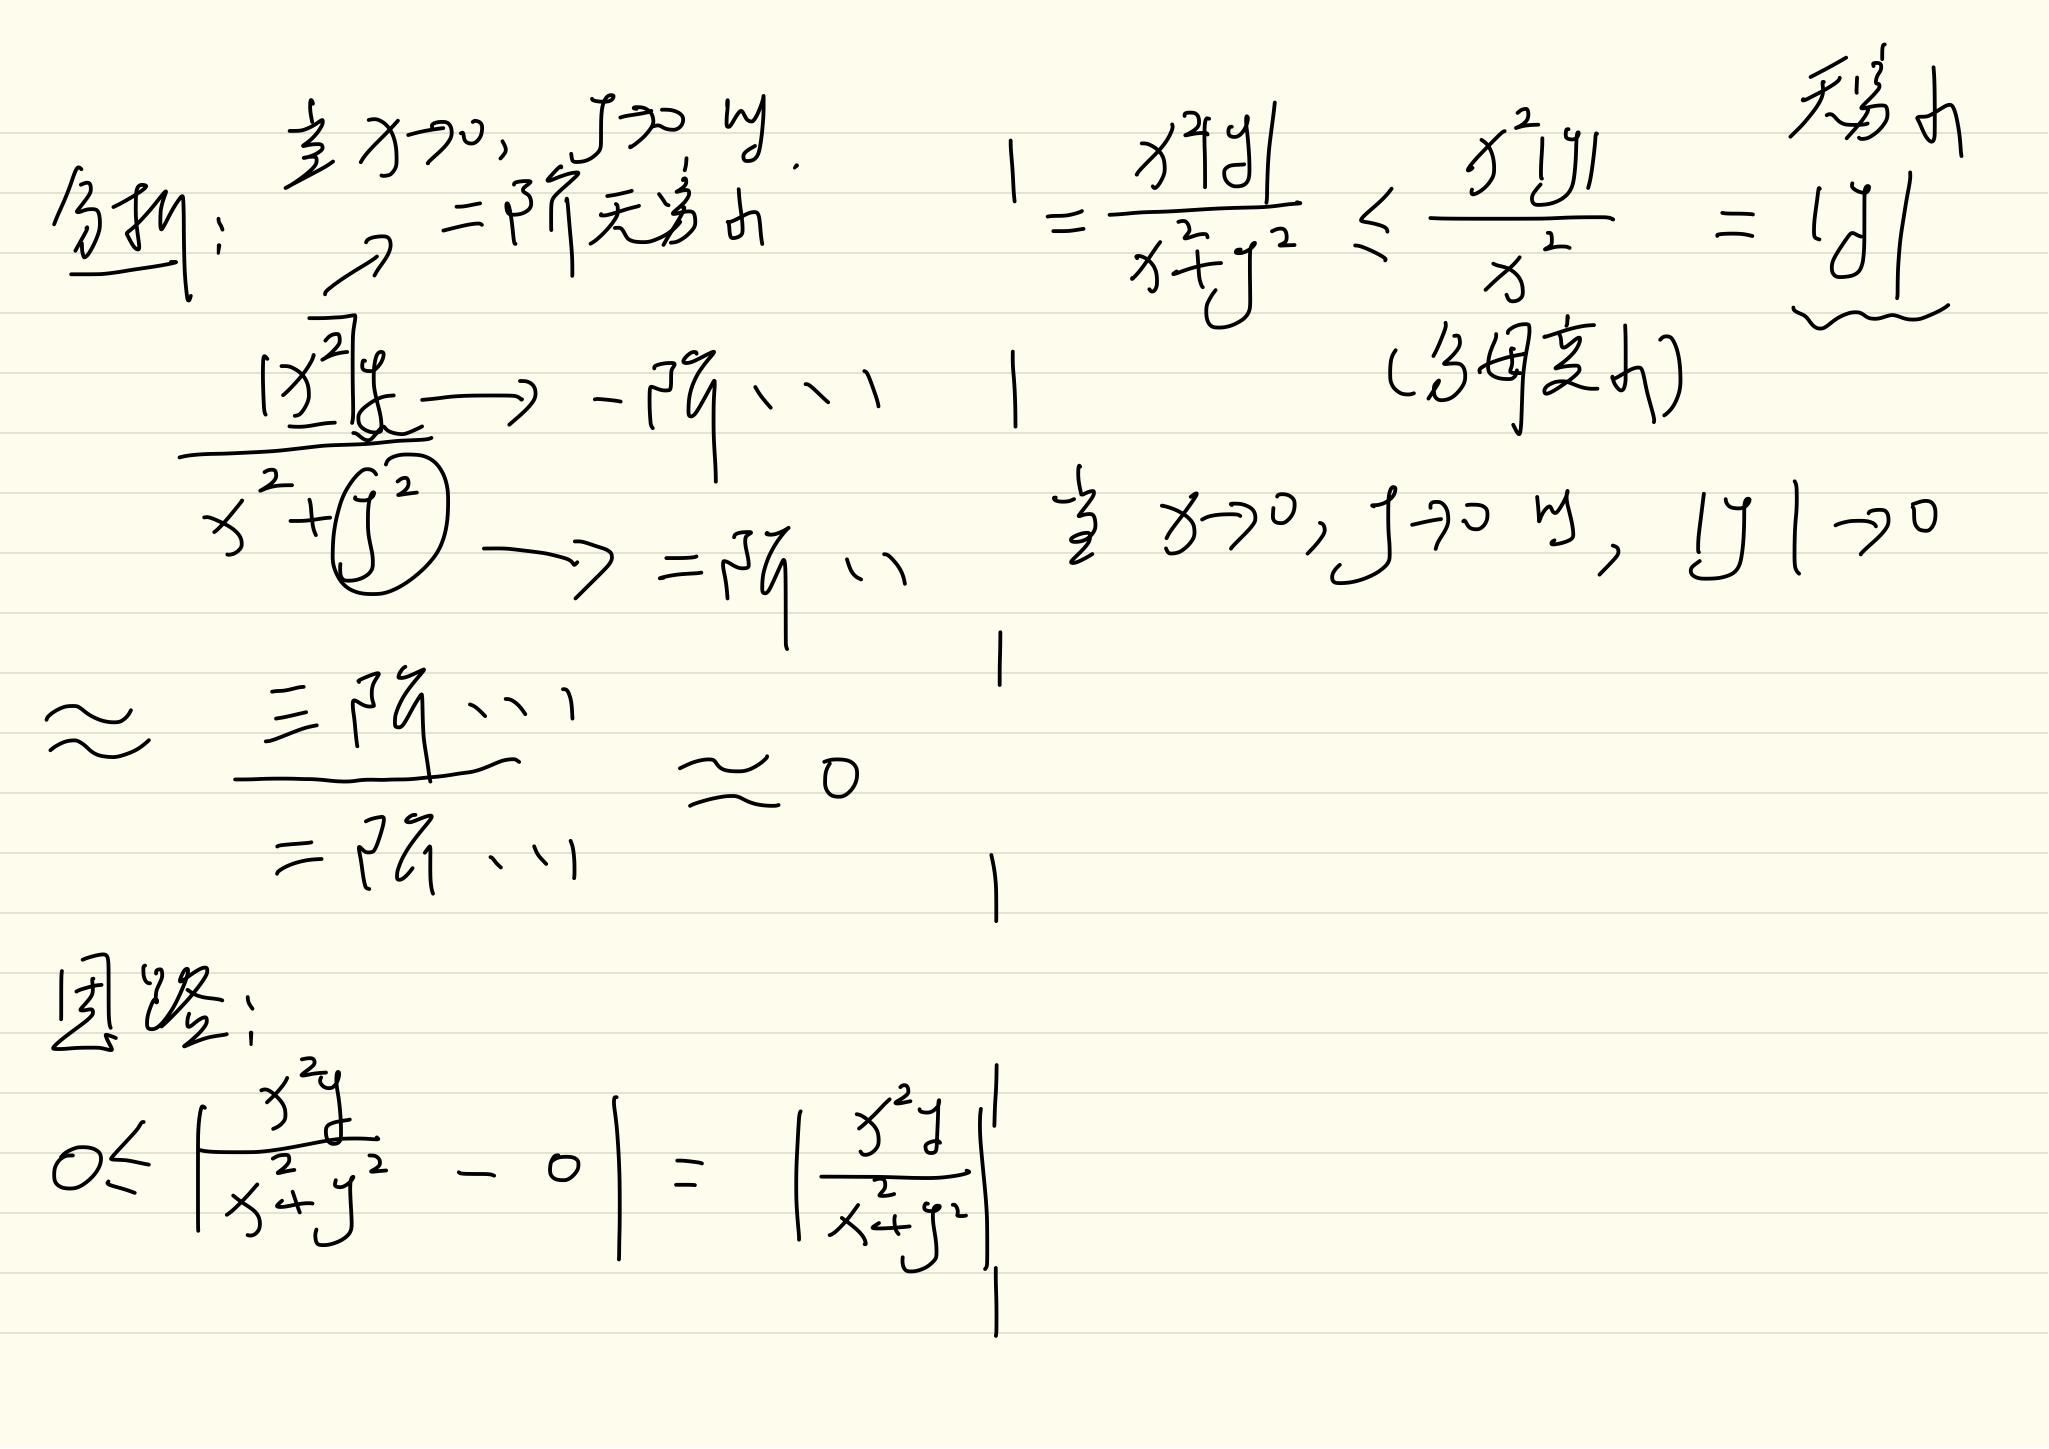 分析:
当 x→0, y→0 时.
=阶无穷小
x²y → 一阶...
x²+y² → 二阶...
≈ 三阶... / 二阶... ≈ 0
思路:
0≤ |x²y / (x²+y²) - 0| = |x²y / (x²+y²)|
= x²|y| / (x²+y²) ≤ x²|y| / x² = |y|
无穷小
(分母变小)
当 x→0, y→0 时, |y|→0